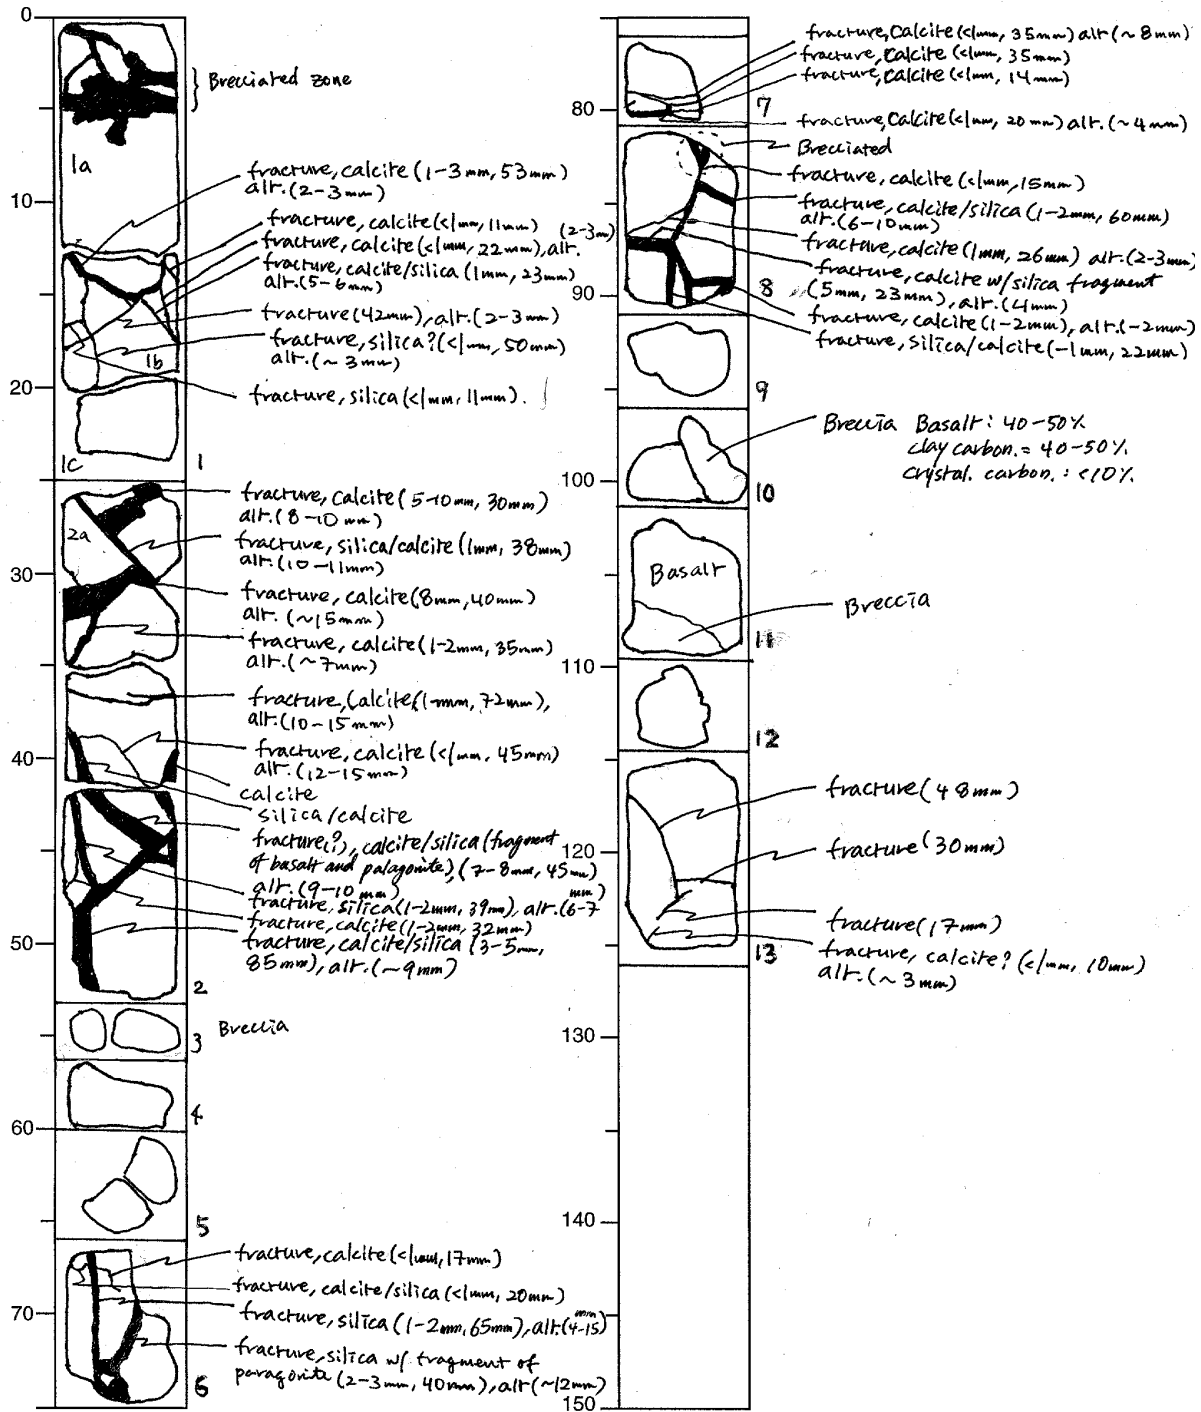 0
Brecciated zone
1a
fracture, calcite (1-3mm, 53mm)
alt. (2-3mm)
10
fracture, calcite (<1mm, 11mm) (2-3m)
fracture, calcite (<1mm, 22mm), alt.
fracture, calcite/silica (1mm, 23mm)
alt. (5-6mm)
fracture (42mm), alt. (2-3mm)
fracture, silica? (<1mm, 50mm)
1b
alt. (~3mm)
20
fracture, silica (<1mm, 11mm).
1c
1
fracture, calcite (5-10mm, 30mm)
alt. (8-10mm)
2a
fracture, silica/calcite (1mm, 38mm)
alt. (10-11mm)
30
fracture, calcite (8mm, 40mm)
alt. (~15mm)
fracture, calcite (1-2mm, 35mm)
alt. (~7mm)
fracture, calcite (1-mm, 72mm),
alt. (10-15mm)
fracture, calcite (<1mm, 45mm)
40
alt. (12-15mm)
calcite
silica/calcite
fracture(?), calcite/silica (fragment
of basalt and palagonite), (7-8mm, 45mm)
alt. (9-10mm)
mm)
fracture, silica (1-2mm, 39mm), alt. (6-7
fracture, calcite (1-2mm, 32mm)
fracture, calcite/silica (3-5mm,
50
85mm), alt. (~9mm)
2
Breccia
3
4
60
5
fracture, calcite (<1mm, 17mm)
fracture, calcite/silica (<1mm, 20mm)
70
mm
fracture, silica (1-2mm, 65mm), alt. (4-15)
fracture, silica w/ fragment of
paragonite (2-3mm, 40mm), alt (~12mm)
6
fracture, calcite (<1mm, 35mm) alt (~8mm)
fracture, calcite (<1mm, 35mm)
fracture, calcite (<1mm, 14mm)
7
80
fracture, calcite (<1mm, 20mm) alt. (~4mm)
Brecciated
fracture, calcite (<1mm, 15mm)
fracture, calcite/silica (1-2mm, 60mm)
alt. (6-10mm)
fracture, calcite (1mm, 26mm) alt. (2-3mm)
fracture, calcite w/silica fragment
8
(5mm, 23mm), alt. (4mm)
90
fracture, calcite (1-2mm), alt. (-2mm)
fracture, silica/calcite (-1mm, 22mm)
9
Breccia Basalt: 40-50%
clay carbon. = 40-50%
Crystal. carbon. : <10%
100
10
Basalt
Breccia
11
110
12
fracture (48mm)
120
fracture (30mm)
fracture (17mm)
13
fracture, calcite? (<1mm, 10mm)
alt. (~3mm)
130
140
150